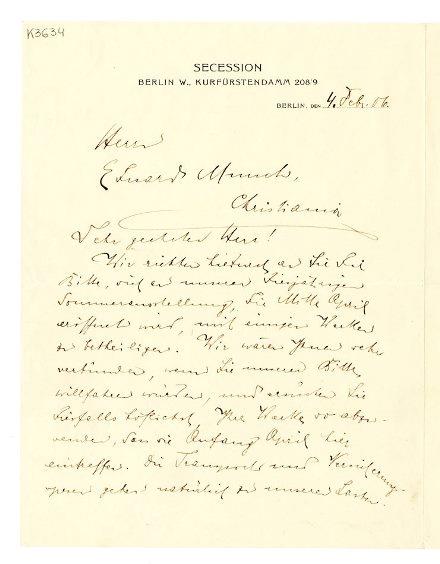 K3634
SECESSION
BERLIN W., KURFÜRSTENDAMM 208/9
BERLIN, DEN 4. Febr. 06.
Herrn
Eduard Munch,
Christiania
Sehr geehrter Herr!
Wir richten hierdurch an Sie die
Bitte, sich an unserer diesjährigen
Sommerausstellung, die Mitte April
eröffnet wird, mit einigen Werken
zu betheiligen. Wir wären Ihnen sehr
verbunden, wenn Sie unserer Bitte
willfahren würden, und ersuchen Sie
diesfalls höflichst, Ihre Werke so abzu-
senden, dass sie Anfang April hier
eintreffen. Die Transport und Versicherungs-
spesen gehen natürlich zu unseren Lasten.